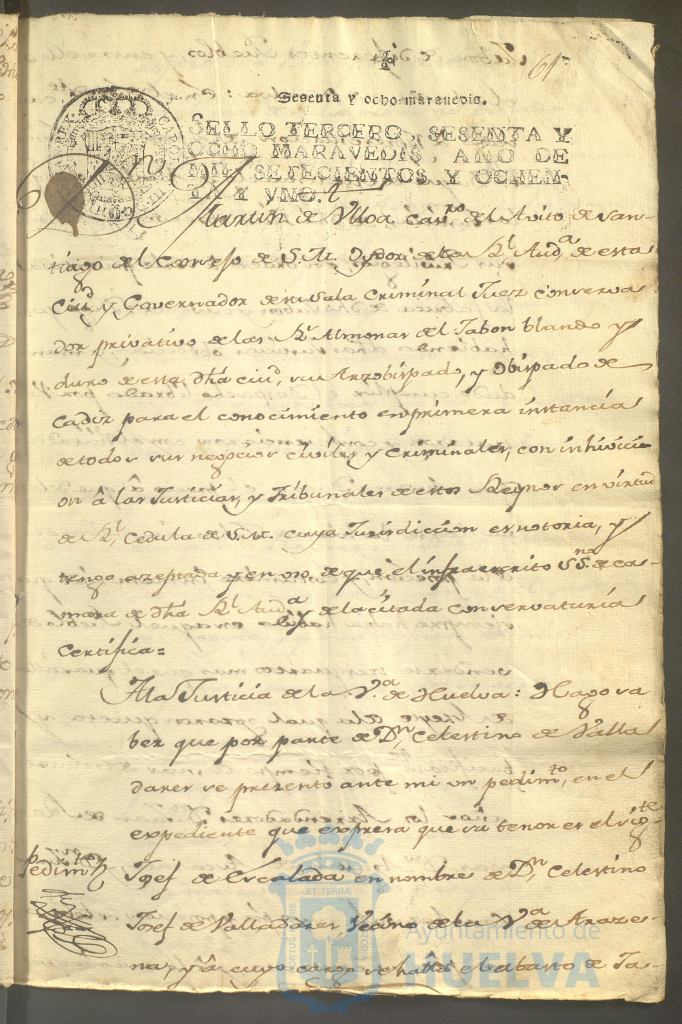 61
Sesenta y ocho maravedis.
SELLO TERCERO, SESENTA Y
OCHO MARAVEDIS, AÑO DE
MIL SETECIENTOS Y OCHEN-
TA Y VNO.
Dn Martin de Vlloa Cavro. del Avito de San-
tiago del Consejo de S.M. Oydor de la Rl. Auda. de esta
Ciud. y Governador de su Sala Criminal Juez conserva
dor privativo de las Rs. Almonas del Jabon blando y
duro de esta dha ciud, su Arzobispado, y Obispado de
Cadiz para el conocimiento en primera instancia
de todos sus negocios civiles y Criminales, con inhivici
on â las Justicias, y Tribunales de estos Reynos en virtud
de Rl. Cedula de S.M. cuya Jurisdiccion es notoria, y
tengo azeptada y en uso de que el infraescrito SSno. de ca-
mara de dha Rl. Auda. y de la citada conservaturia
Certifica=
A la Justicia de la Va. de Huelva: Hago sa
ber que por parte de Dn. Celestino de Valla
dares se prezento ante mi un pedimto, en el
expediente que expresa que su tenor es el sigte.
Pedimto
Josef de Escalada en nombre de Dn. Celestino
Josef de Valladares Vecino de la Va. de Araze-
na, y â cuyo cargo se halla el abasto de Ja-
ET TERRÆ
Ayuntamiento de
HUELVA